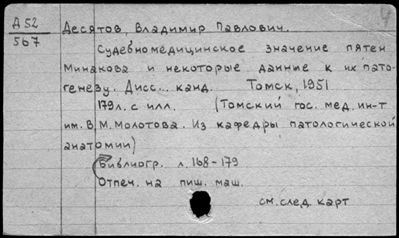 Д 52
567
Десятов, Владимир Павлович.
Судебномедицинское значение пятен
Минакова и некоторые данные к их пато-
генезу. Дисс... канд. Томск, 1951
179 л. с илл. (Томский гос. мед. ин-т
им. В.М. Молотова. Из кафедры патологической
анатомии)
Библиогр. л. 168-179
Отпеч. на пиш. маш.
см. след. карт